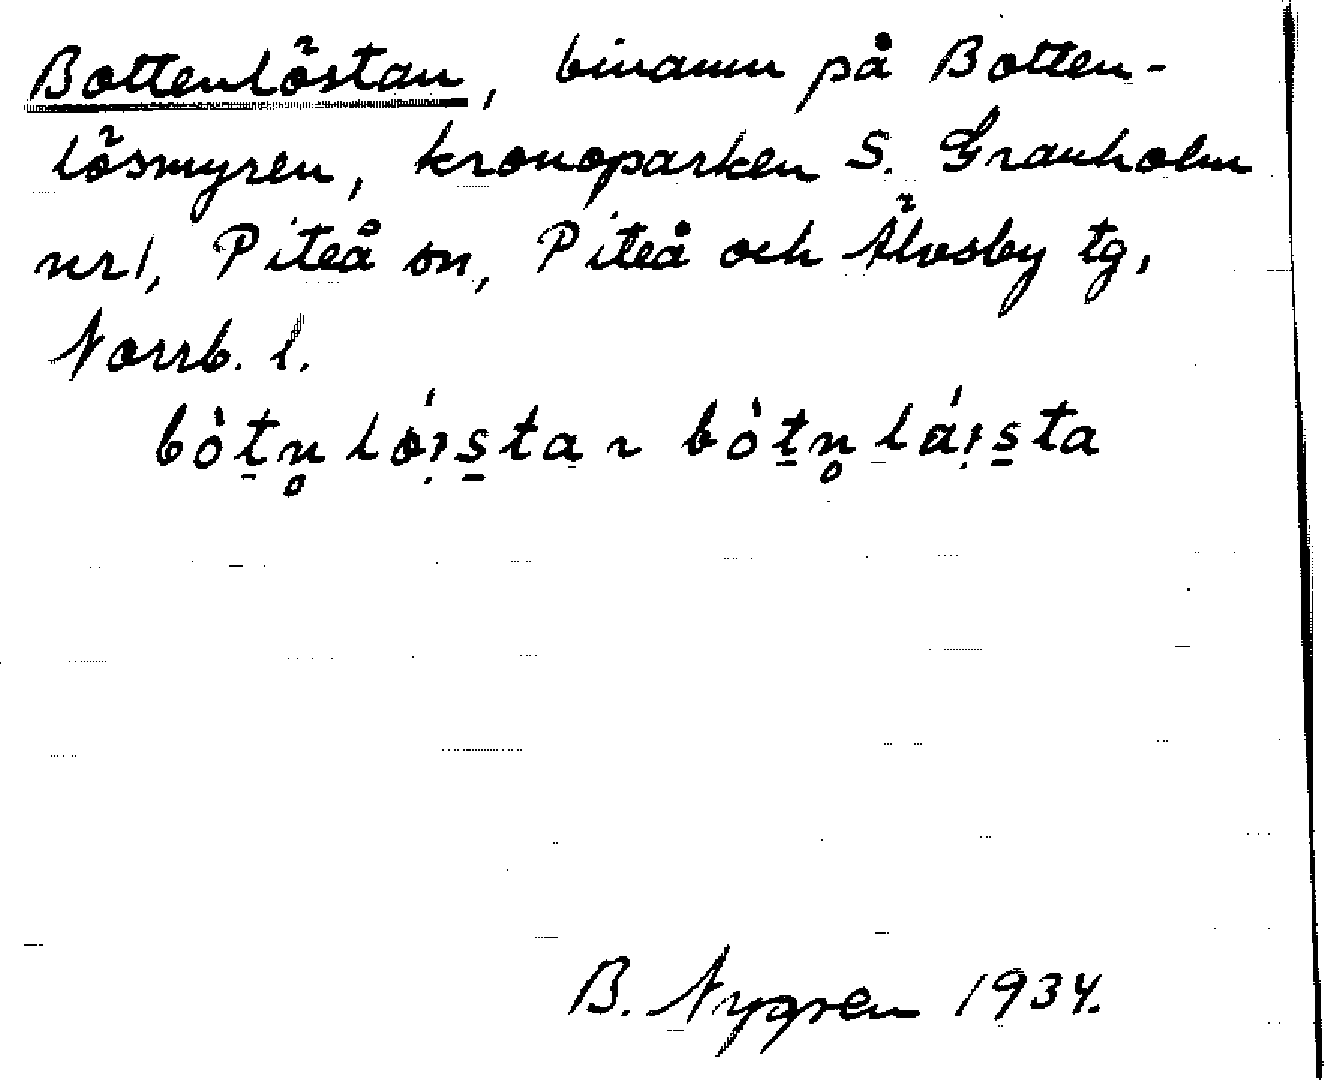 Bottenlöstan, binamn på Botten-
lösmyren, kronoparken S. Granholm
nr 1, Piteå sn, Piteå och Älvsby tg,
Norrb. l.
bòt̠n̥ló̤i̩s̠ta ~ bòt̠n̥lái̩s̠ta
B. Nygren 1934.